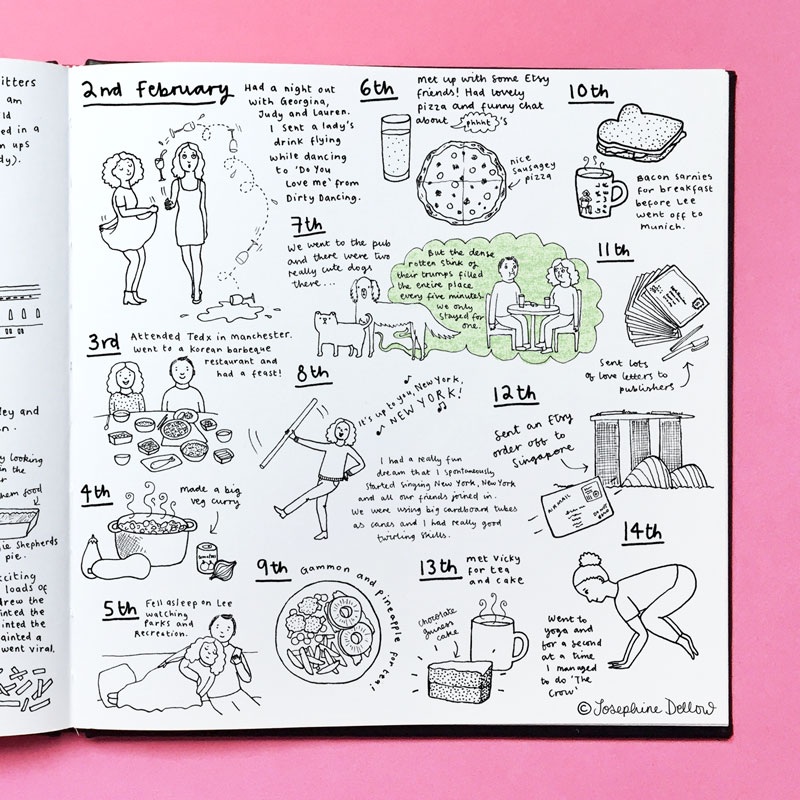 itters
am
ld
ed in a
n ups
dy).
ley and
n.
y looking
in the
r
hem food
ie Shepherds
pie.
citing
loads of
drew the
inted the
inted the
ainted a
went viral.
2nd February
Had a night out
with Georgina,
Judy and Lauren.
I sent a lady's
drink flying
while dancing
to 'Do You
Love me' from
Dirty Dancing.
3rd
Attended Tedx in Manchester.
Went to a Korean barbeque
restaurant and
had a feast!
4th
made a big
veg curry
5th
Fell asleep on Lee
watching
Parks and
Recreation.
6th
Met up with some Etsy
friends! Had lovely
pizza and funny chat
about phhht 's
nice
sausagey
pizza
7th
We went to the pub
and there were two
really cute dogs
there...
But the dense
rotten stink of
their trumps filled
the entire place
every five minutes.
We only
stayed for
one.
8th
It's up to you, New York,
NEW YORK!
I had a really fun
dream that I spontaneously
started singing New York, New York
and all our friends joined in.
We were using big cardboard tubes
as canes and I had really good
twirling skills.
9th
Gammon and pineapple for tea!
10th
GIRL
POWER
Bacon sarnies
for breakfast
before Lee
went off to
Munich.
11th
Sent lots
of love letters to
publishers
12th
Sent an Etsy
order off to
Singapore
AIR MAIL
DO NOT
BEND
13th
met Vicky
for tea
and cake
chocolate
guiness
cake
14th
Went to
yoga and
for a second
at a time
I managed
to do 'The
Crow'
© Josephine Dellow